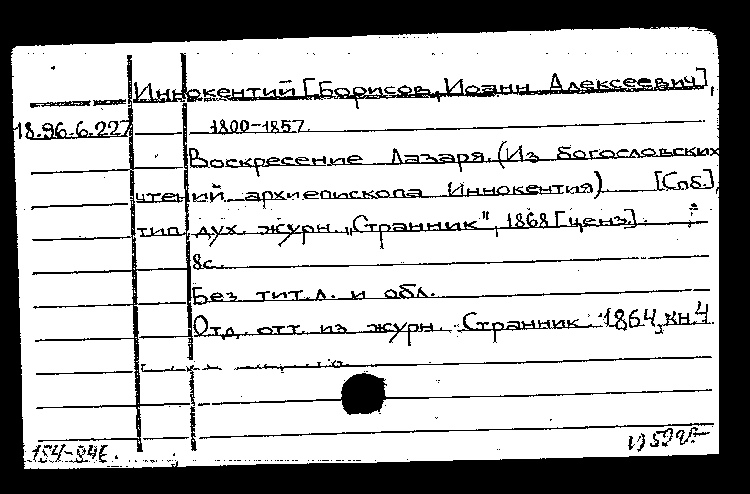 Иннокентий [Борисов, Иоанн Алексеевич],
18.96.6.227 1800-1857.
Воскресение Лазаря. (Из богословских
чтений архиепископа Иннокентия) [Спб.],
тип. дух. журн. „Странник", 1868 [ценз.].
8с.
Без тит. л. и обл.
Отд. отт. из журн. Странник. 1864, кн. 4
154-84Е.